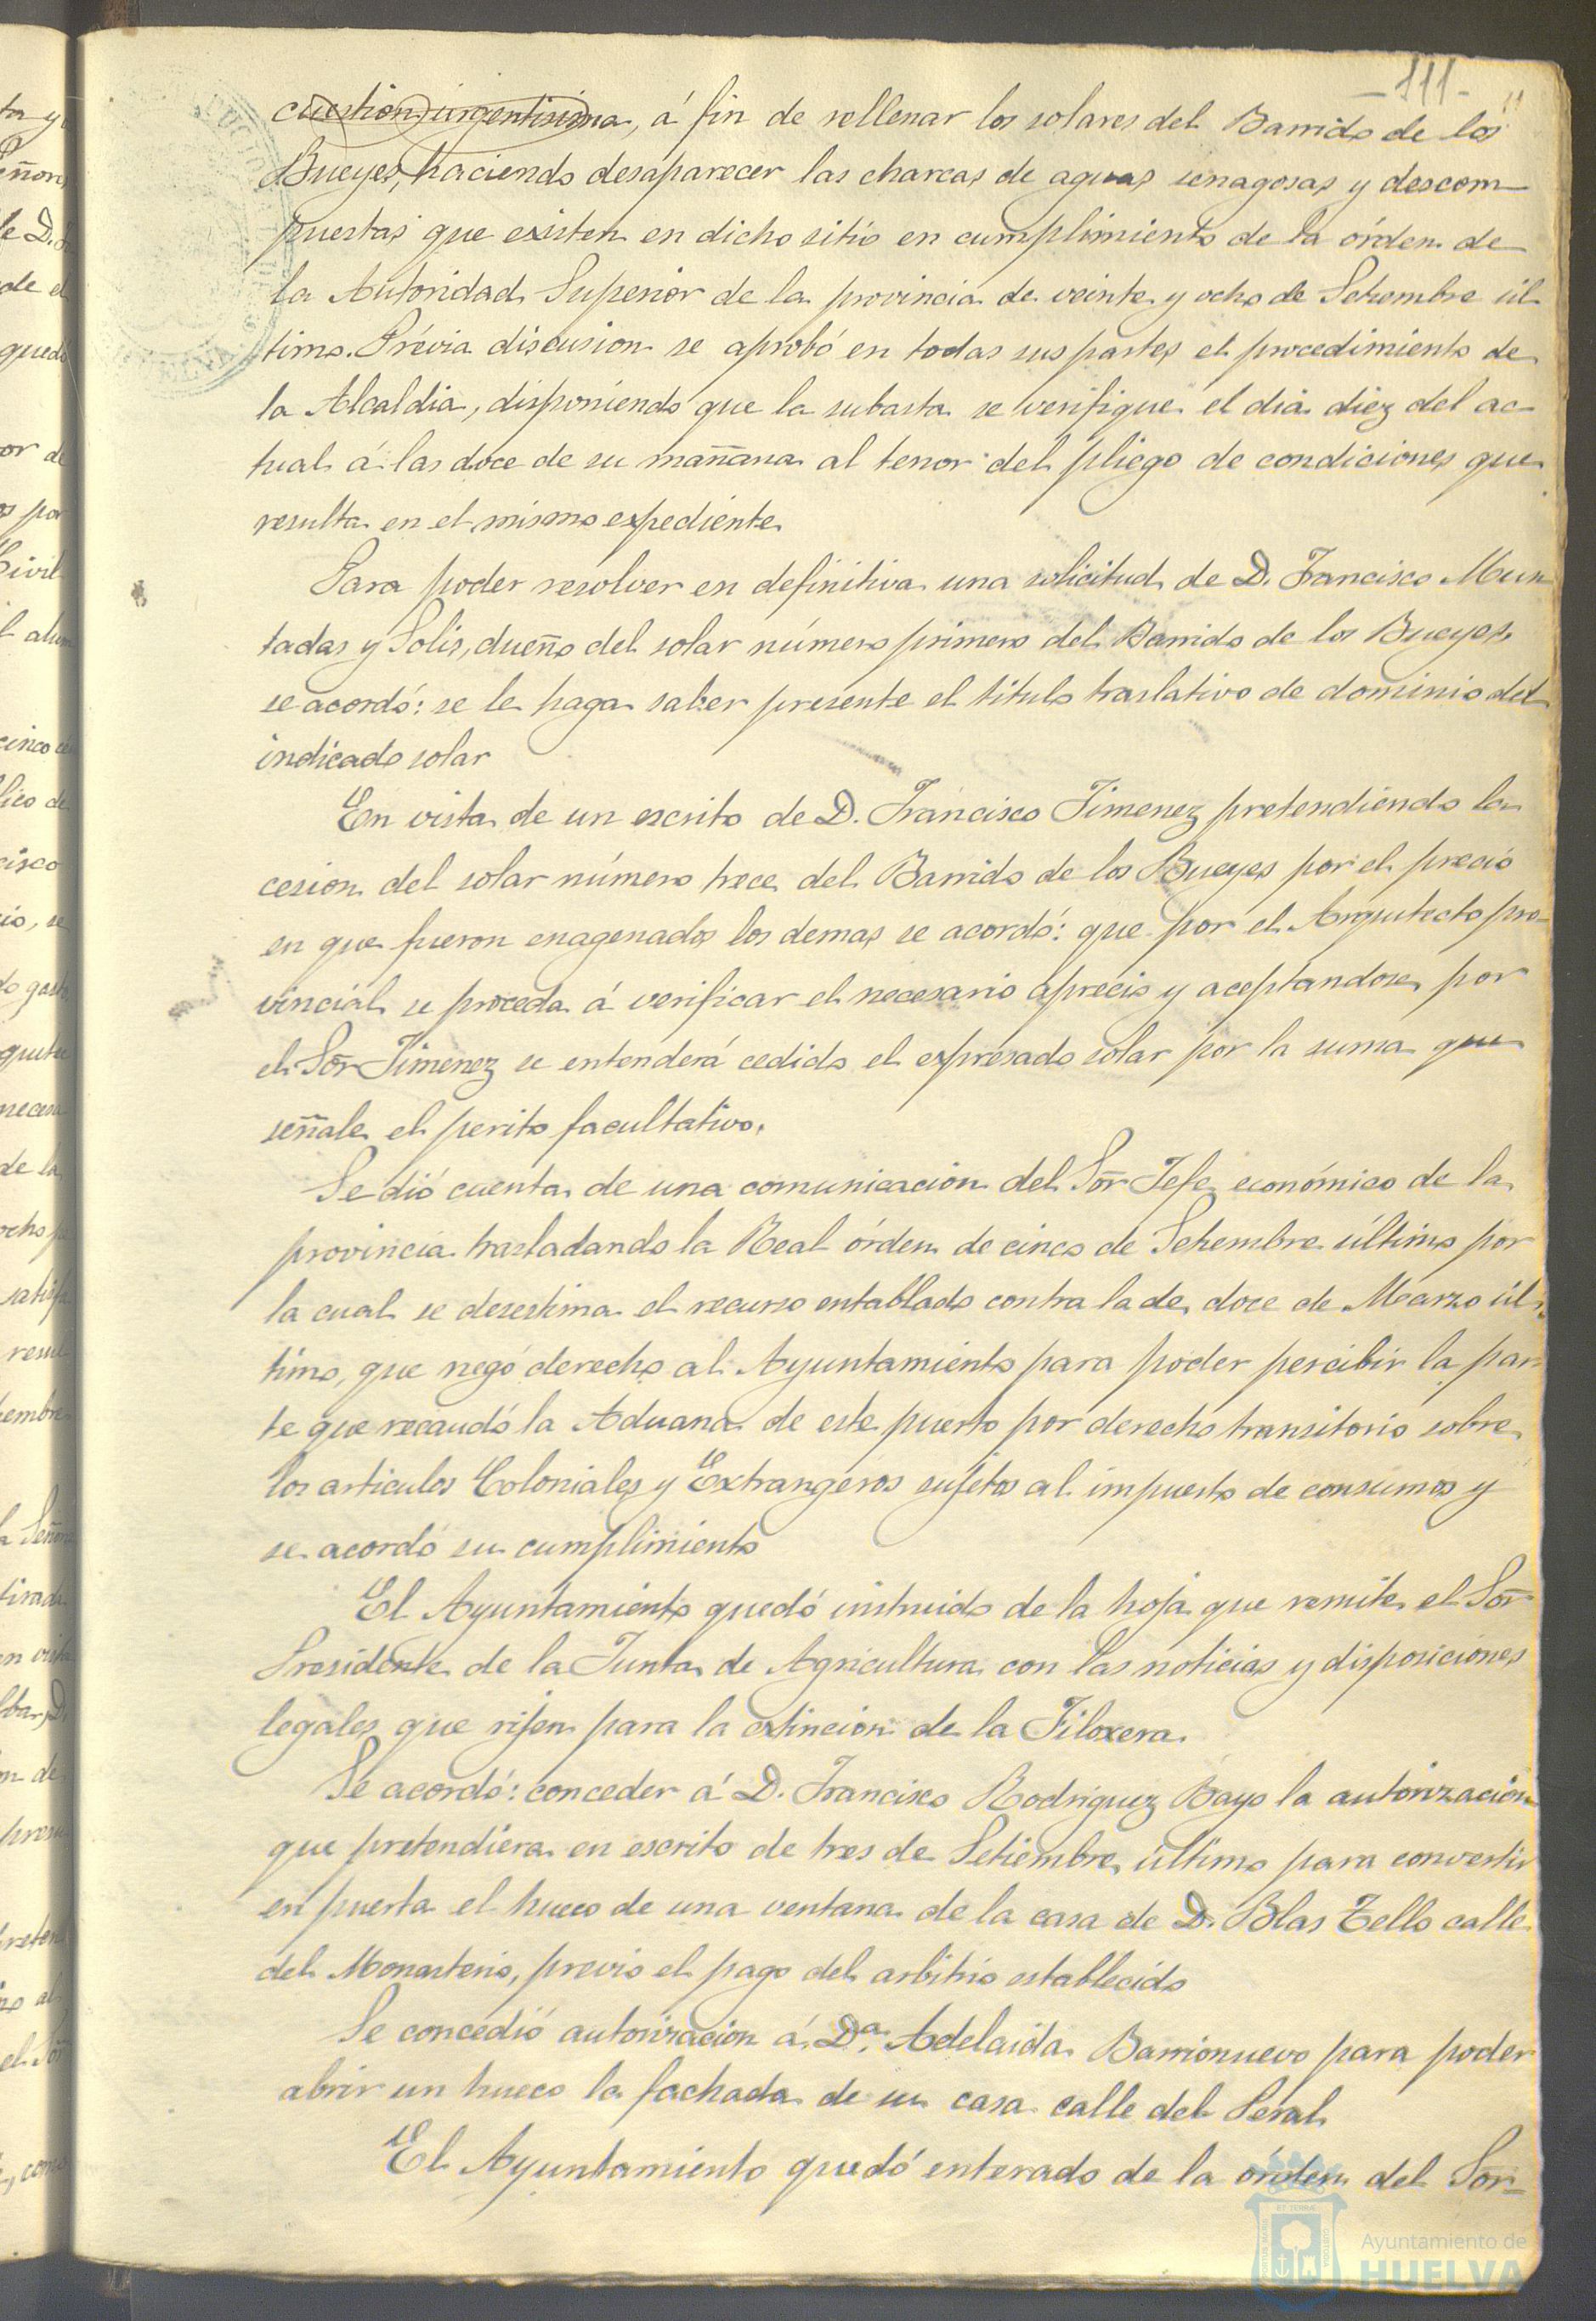 -111-
cuestion urgentisima, á fin de rellenar los solares del Barrido de los
Bueyes, haciendo desaparecer las charcas de aguas senagosas y descom-
puestas que existen en dicho sitio en cumplimiento de la órden de
la Autoridad Superior de la provincia de veinte y ocho de Setiembre úl-
timo. Prévia discusion se aprobó en todas sus partes el procedimiento de
la Alcaldia, disponiendo que la subasta se verifique el dia diez del ac-
tual á las doce de su mañana al tenor del pliego de condiciones que
resulta en el mismo expediente
Para poder resolver en definitiva una solicitud de D. Francisco Mun
tadas y Solis, dueño del solar número primero del Barrido de los Bueyes
se acordó: se le haga saber presente el titulo traslativo de dominio del
indicado solar
En vista de un escrito de D. Francisco Jimenez pretendiendo la
cesion del solar número trece del Barrido de los Bueyes por el precio
en que fueron enagenados los demas se acordó: que por el Arquitecto pro-
vincial se proceda á verificar el necesario aprecio y aceptandose por
el Sor Jimenez se entenderá cedido el expresado solar por la suma que
señale el perito facultativo.
Se dió cuenta de una comunicacion del Sor Jefe económico de la
provincia trasladando la Real órden de cinco de Setiembre último por
la cual se desestima el recurso entablado contra la de doce de Marzo úl-
timo, que negó derecho al Ayuntamiento para poder percibir la par-
te que recaudó la Aduana de este puerto por derecho transitorio sobre
los articulos Coloniales y Extrangeros sujetos al impuesto de consumos y
se acordó su cumplimiento
El Ayuntamiento quedó instruido de la hoja que remite el Sor
Presidente de la Junta de Agricultura con las noticias y disposiciones
legales que rijen para la extincion de la Filoxera.
Se acordó: conceder á D. Francisco Rodriguez Bayo la autorizacion
que pretendiera en escrito de tres de Setiembre último para convertir
en puerta el hueco de una ventana de la casa de D. Blas Tello calle
del Monasterio, previo el pago del arbitrio establecido
Se concedió autorizacion á Dª Adelaida Barrionuevo para poder
abrir un hueco la fachada de su casa calle del Peral
El Ayuntamiento quedó enterado de la órden del Sor
Ayuntamiento de
HUELVA